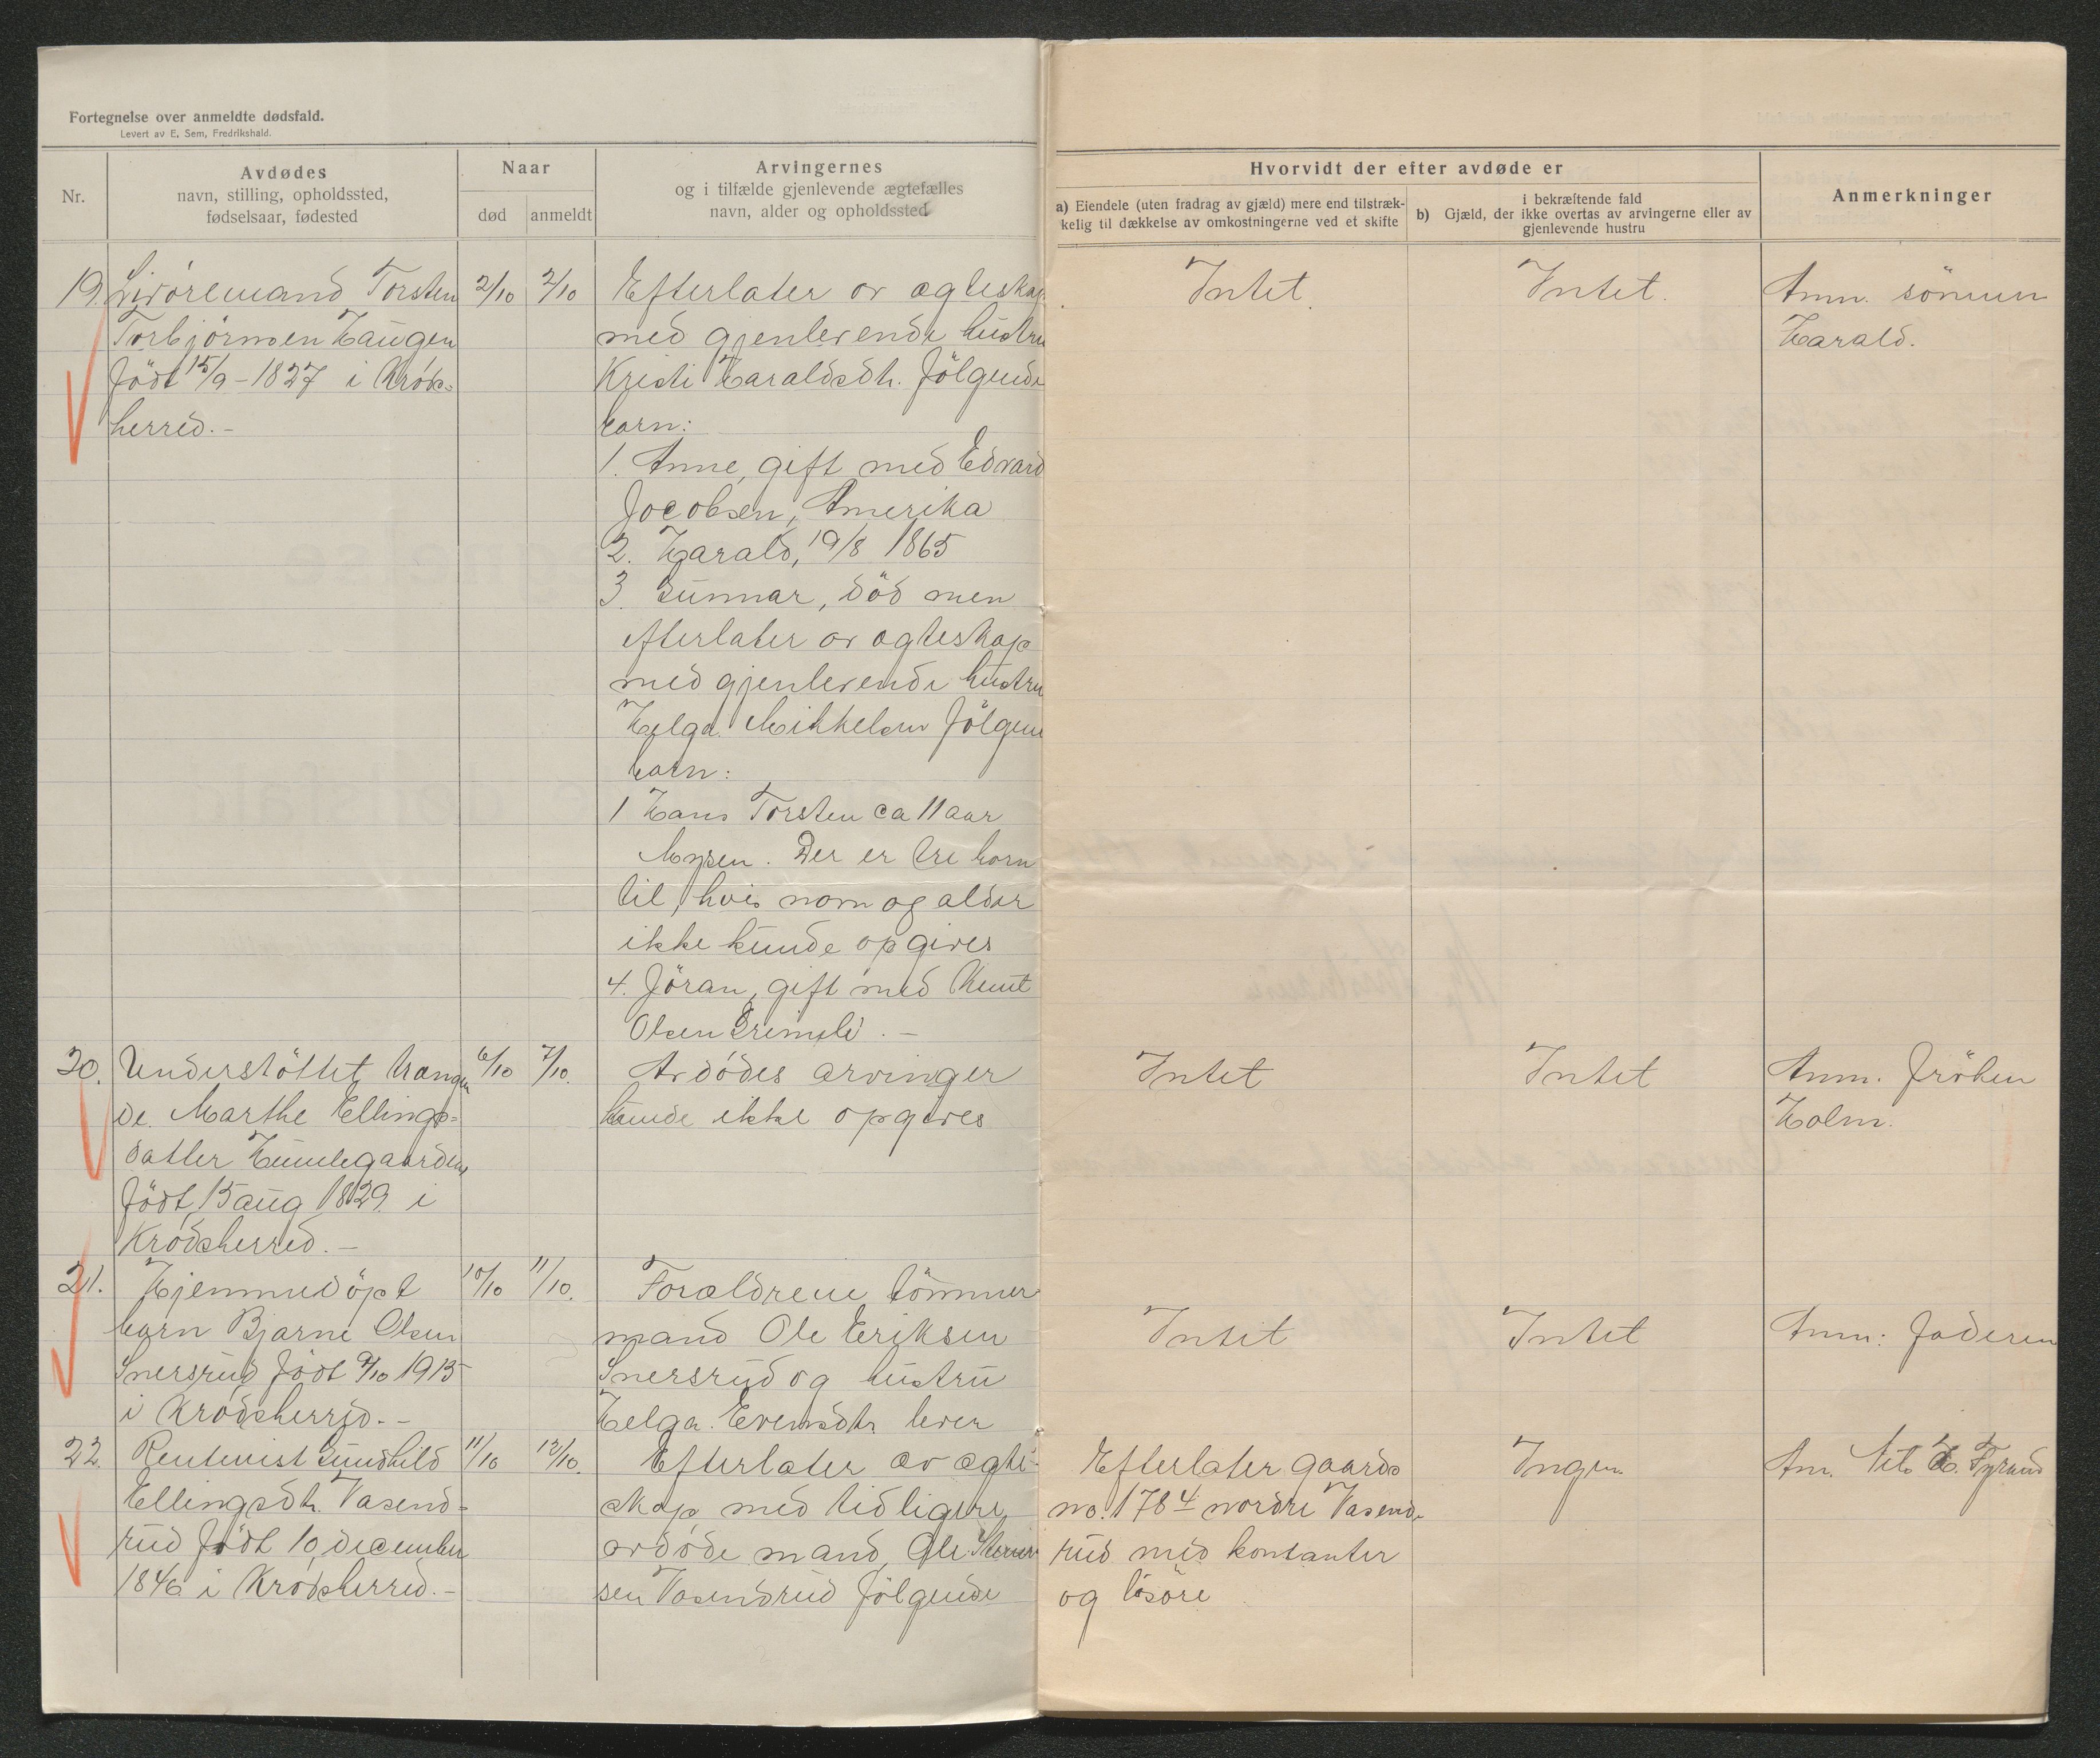 Fortegnelse over anmeldte dødsfald.
Levert av E. Sem, Fredrikshald.
Nr.
Avdødes
navn, stilling, opholdssted,
fødselsaar, fødested
Naar
død
anmeldt
Arvingernes
og i tilfælde gjenlevende ægtefælles
navn, alder og opholdssted
Hvorvidt der efter avdøde er
a) Eiendele (uten fradrag av gjæld) mere end tilstræk-
kelig til dækkelse av omkostningerne ved et skifte
i bekræftende fald
b) Gjæld, der ikke overtas av arvingerne eller av
gjenlevende hustru
Anmerkninger
19. Livöremand Torsten
Torbjörnsen Haugen
födt 15/9 - 1827 i Kröds-
herred. -
2/10
2/10
Efterlater av ægteskap
med gjenlevende hustru
Kristi Haraldsdt. fölgende
barn:
1. Anne, gift med Edvard
Jocobsen, Amerika
2. Harald, 19/8 1865
3. Gunnar, död men
efterlater av ægteskap
med gjenlevende hustru
Helga Mikkelsen fölgen
barn:
1 Hans Torsten ca 11 aar
Mysen. Der er tre barn
til, hvis navn og alder
ikke kunde opgives
4. Jöran, gift med Knut
Olsen Grimeli. -
Intet
Intet.
Anm. sönnen
Harald.
20. Understöttet trængen
de. Marthe Ellings-
datter Humlegaarden
födt 15 aug 1829 i
Krödsherred. -
6/10
7/10.
Avdödes arvinger
kunde ikke opgives
Intet
Intet
Anm. fröken
Holm.
21. Hjemmedöpt
barn Bjarne Olsen
Snersrud födt 9/10 1915
i Krödsherred. -
10/10
11/10.
Forældrene tömmer
mand Ole Eriksen
Snersrud og hustru
Helga Evensdtr lever
Intet
Intet
Anm: faderen
22. Rentenist Gundhild
Ellingsdt. Vasend-
rud födt 10 december
1846 i Krödsherred. -
11/10
12/10.
Efterlater av ægte-
skap med tidligere
avdöde mand, Ole
sen Vasendrud fölgende
Efterlater gaards
no. 178 4 nordre Vasend-
rud med kontanter
og lösöre
Ingen
An. Nils H. Fyrand